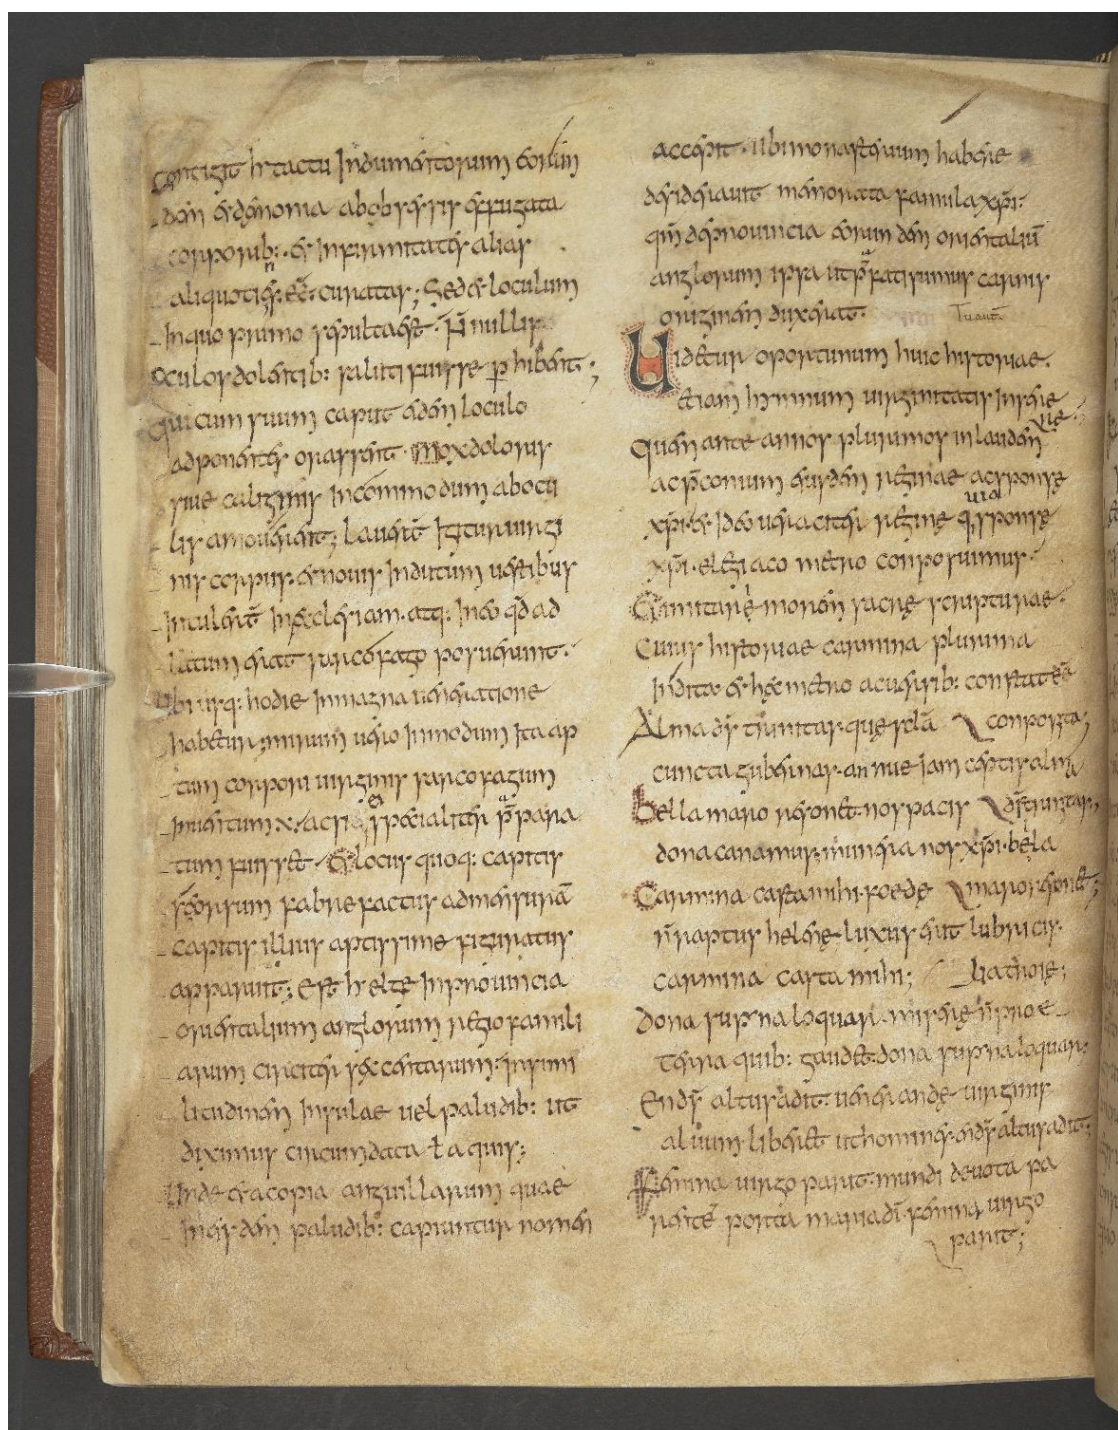 contigit h tactu Indumentorum eorum
dem & demonia ab obsessis effugata
corporib: & Infirmitates alias
aliquoties: eē curatas; Sed & loculum
In quo primo sepulta est. n̄ nullis
oculos dolentib: saluti fuisse p hibent;
qui cum suum caput eidem loculo
adponentes orassent mox doloris
siue caliginis Incommodum ab ocu
lis amouerent; Lauerunt Igitur uirgi
nis corpus. & nouis Indutum uestibus
Intulerunt In ecclesiam. atq: In eo qd ad
latum erat sarcofago posuerunt.
ubi usq: hodie In magna ueneratione
habetur; mirum uero In modum Ita ap
tum corpori uirginis sarcofagum
Inuentum x. ac si ei specialiter p̄para
tum fuisset. & locus quoq: capitis
seorsum fabre factus ad mensuram
capitis illius aptissime figuratus
apparuit; Est h elge In prouincia
orientalium anglorum regio famili
arum circiter sexcentarum. In simi
litudinem Insulae uel paludib: ut
diximus circumdata ł aquis;
Unde & a copia anguillarum quae
In eisdem paludib: capiuntur nomen
accepit. ubi monasterium habere
desiderauit memorata famula xp̄i.
qm̄ de prouincia eorundem orientaliū
anglorum ipsa ut p̄fati sumus carnis
originem duxerat.
Uidetur oportunum huic historiae.
etiam hymnum uirginitatis Inserere.
Quem ante annos plurimos in laudem
ac p̄conium eiusdem reginae ac sponsę
xp̄i. & Ideo ueraciter reginę quia sponsę
xp̄i. elegiaco metro conposuimus.
& imitari morem sacrę scripturae.
Cuius historiae carmina plurima
Indita & hęc metro ac uersib: constat eē
Alma ds̄ trinitas. quę secla conposita;
cuncta gubernas. annue iam ceptis alma
Bella maro resonet. nos pacis ds̄ trinitas;
dona canamus. munera nos xp̄i. bella
Carmina casta mihi. foedę maro resonet;
n̄ raptus helenę. luxus erit lubricis.
carmina casta mihi;
Dona superna loquar. miserę n̄ proe
liā troię;
terra quib: gaudet. dona superna loquar.
En ds̄ altus adit. uenerandę uirginis
aluum. liberet ut homines. en ds̄ altus adit;
Femina uirgo parit. mundi deuota pa
rentē porta maria dī. femina uirgo
parit;